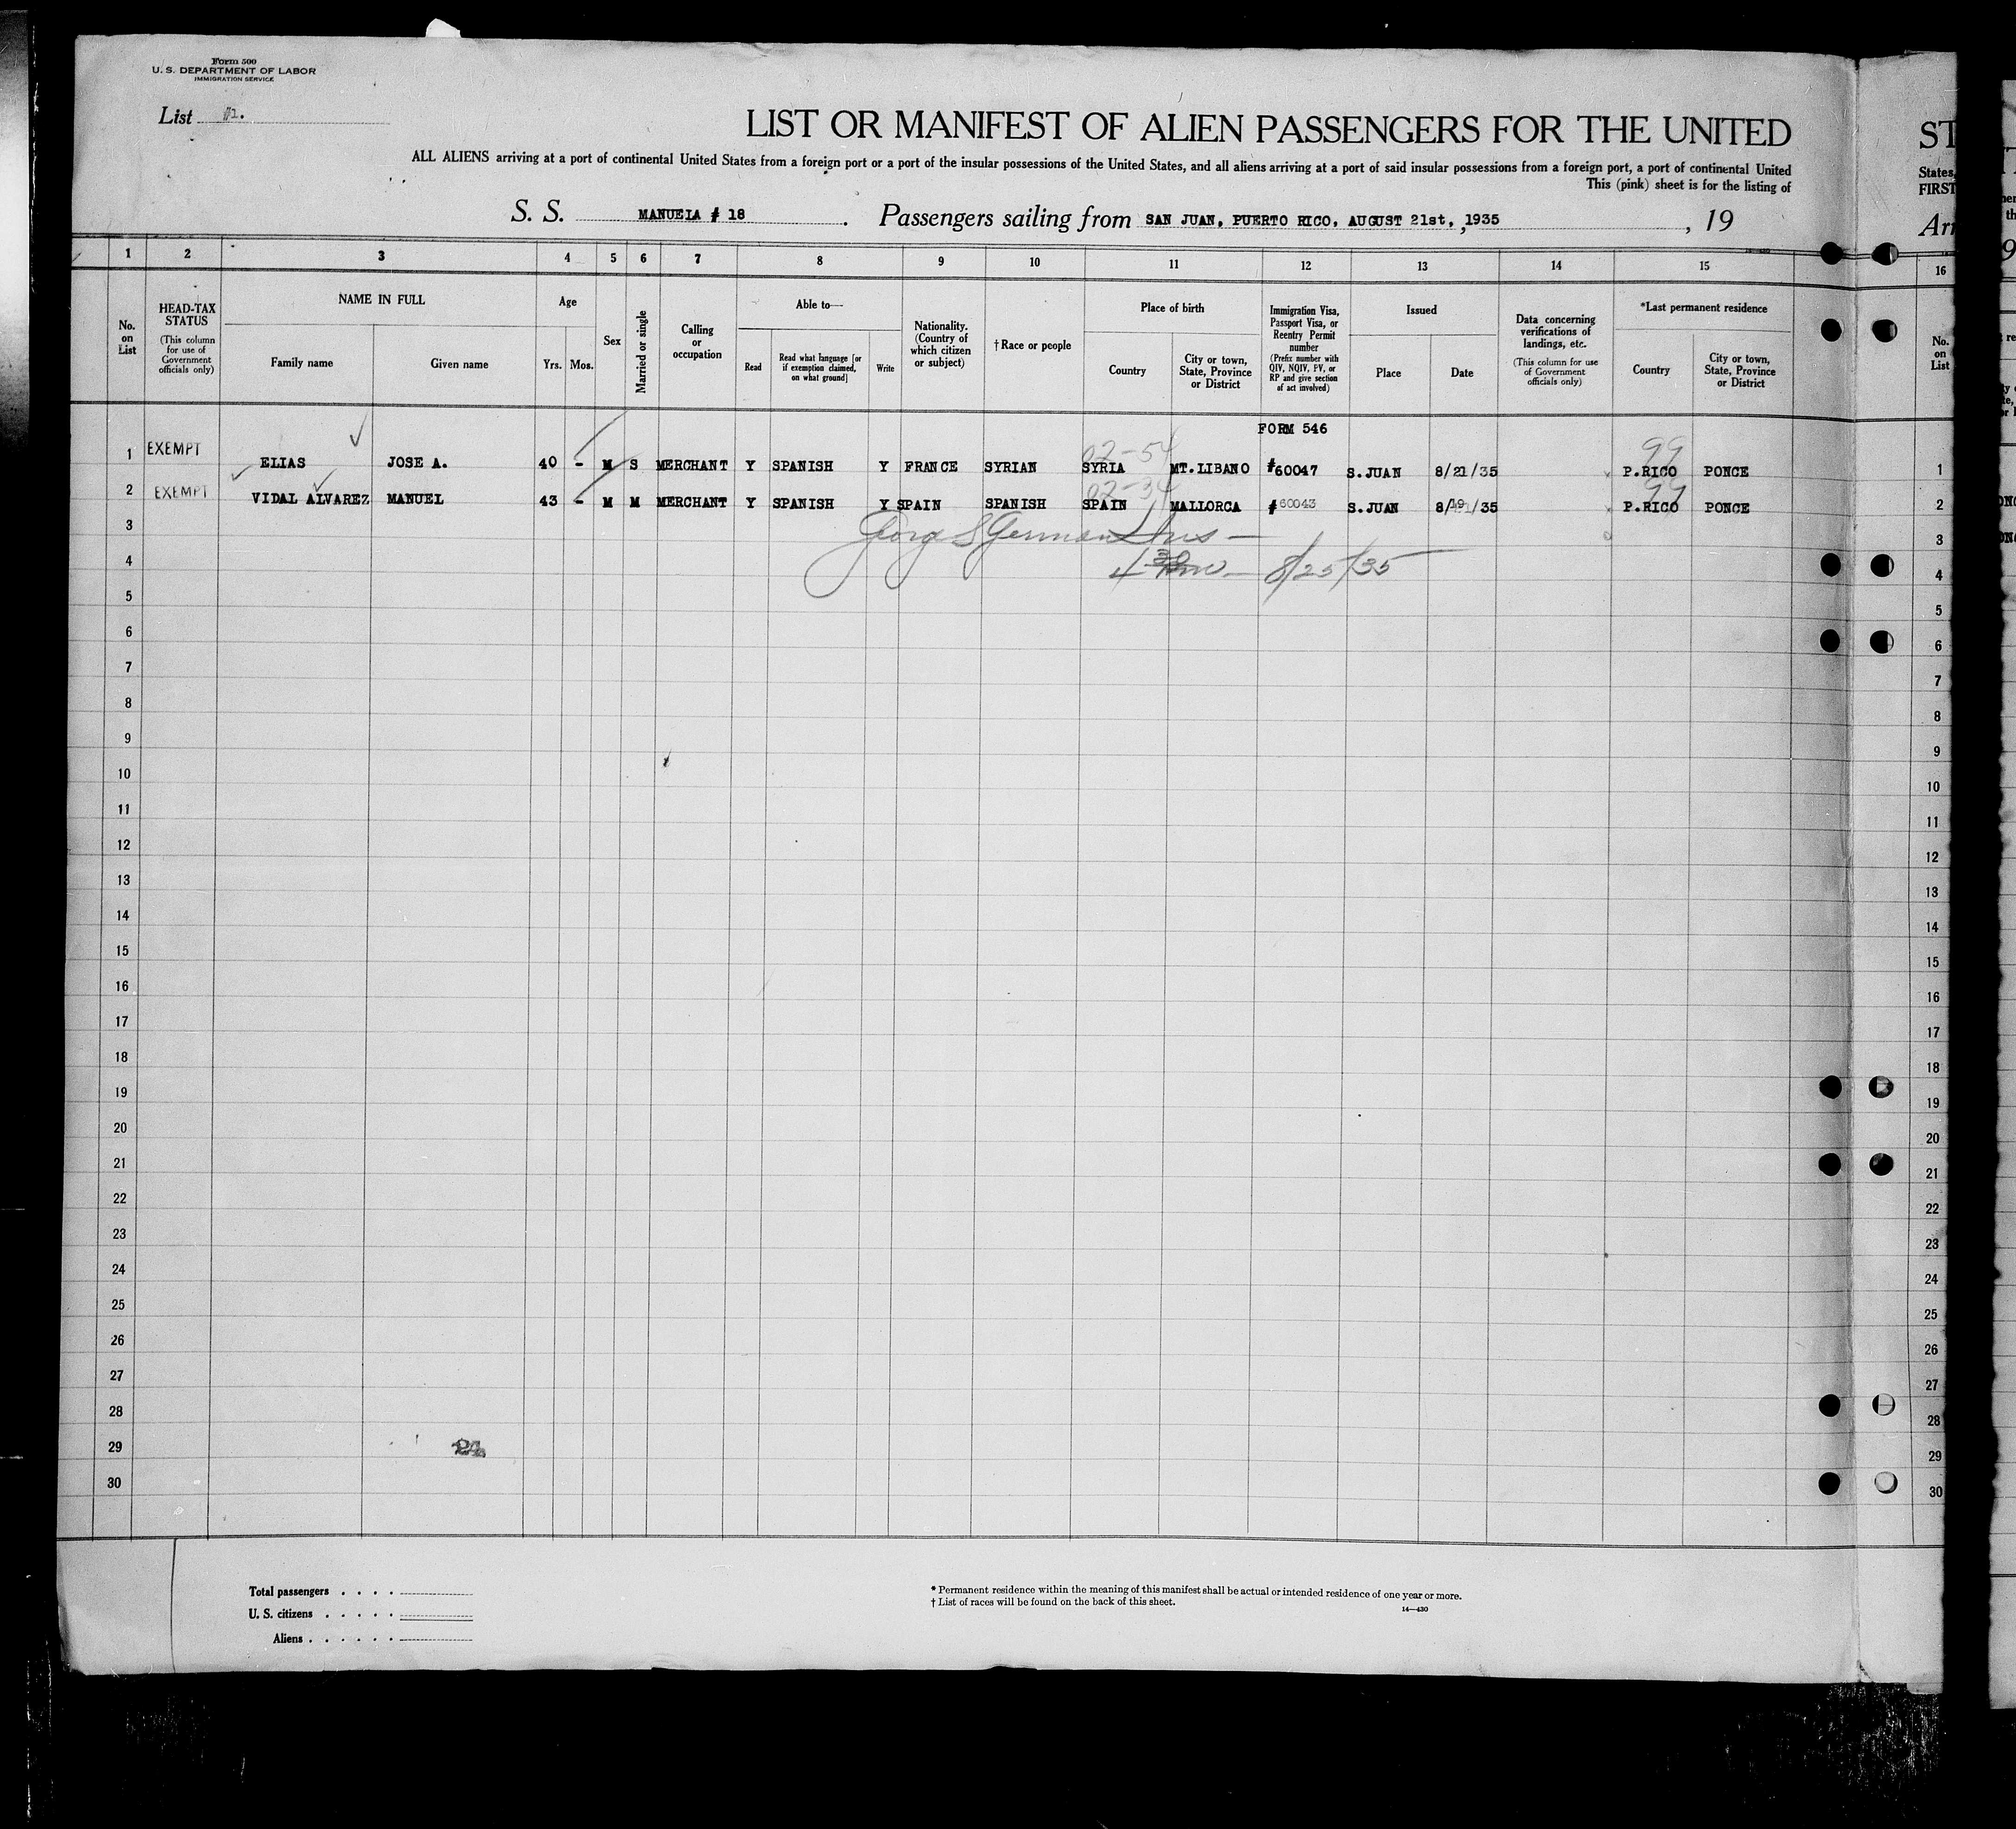 Form 500
U. S. DEPARTMENT OF LABOR
IMMIGRATION SERVICE
List #1.
LIST OR MANIFEST OF ALIEN PASSENGERS FOR THE UNITED
ALL ALIENS arriving at a port of continental United States from a foreign port or a port of the insular possessions of the United States, and all aliens arriving at a port of said insular possessions from a foreign port, a port of continental United
This (pink) sheet is for the listing of
S. S. MANUELA # 18. Passengers sailing from SAN JUAN, PUERTO RICO, AUGUST 21st, , 1935 , 19
ST
States,
FIRST
Arr
1 2 3 4 5 6 7 8 9 10 11 12 13 14 15 16
No. on List
HEAD-TAX STATUS (This column for use of Government officials only)
NAME IN FULL
Family name Given name
Age
Yrs. Mos.
Sex
Married or single
Calling or occupation
Able to—
Read Read what language [or if exemption claimed, on what ground] Write
Nationality. (Country of which citizen or subject)
†Race or people
Place of birth
Country City or town, State, Province or District
Immigration Visa, Passport Visa, or Reentry Permit number (Prefix number with QIV, NQIV, PV, or RP and give section of act involved)
Issued
Place Date
Data concerning verifications of landings, etc. (This column for use of Government officials only)
*Last permanent residence
Country City or town, State, Province or District
No. on List
FORM 546
02-54 99
1 EXEMPT ELIAS JOSE A. 40 - M S MERCHANT Y SPANISH Y FRANCE SYRIAN SYRIA MT. LIBANO #60047 S. JUAN 8/21/35 P.RICO PONCE 1
02-34 99
2 EXEMPT VIDAL ALVAREZ MANUEL 43 - M M MERCHANT Y SPANISH Y SPAIN SPANISH SPAIN MALLORCA #60043 S. JUAN 8/19/35 P.RICO PONCE 2
3 Georg S German Ins — 3
4 8/25/35 4
5 5
6 6
7 7
8 8
9 9
10 10
11 11
12 12
13 13
14 14
15 15
16 16
17 17
18 18
19 19
20 20
21 21
22 22
23 23
24 24
25 25
26 26
27 27
28 28
29 24 29
30 30
Total passengers . . . .
U. S. citizens . . . . .
Aliens . . . . . .
* Permanent residence within the meaning of this manifest shall be actual or intended residence of one year or more.
† List of races will be found on the back of this sheet.
14—430